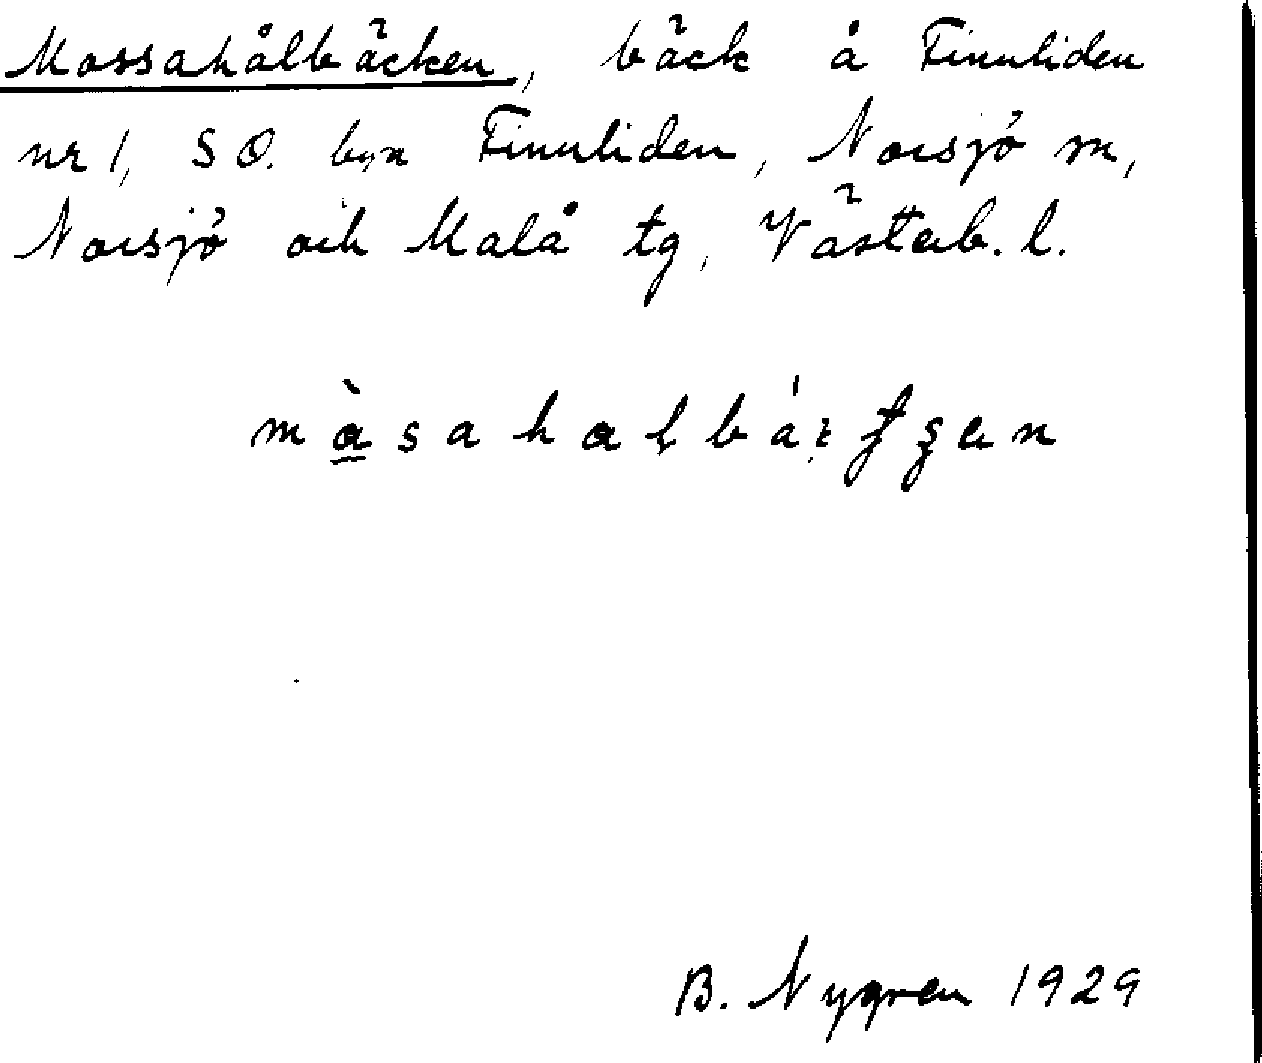 Mossahålbäcken, bäck å Finnliden
nr 1, SO. byn Finnliden, Norsjö sn,
Norsjö och Malå tg, Västerb. l.
B. Nygren 1929